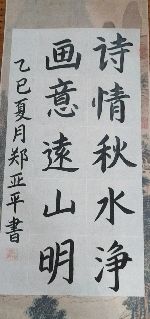 诗情秋水浄
画意遠山明
乙巳夏月郑亚平書